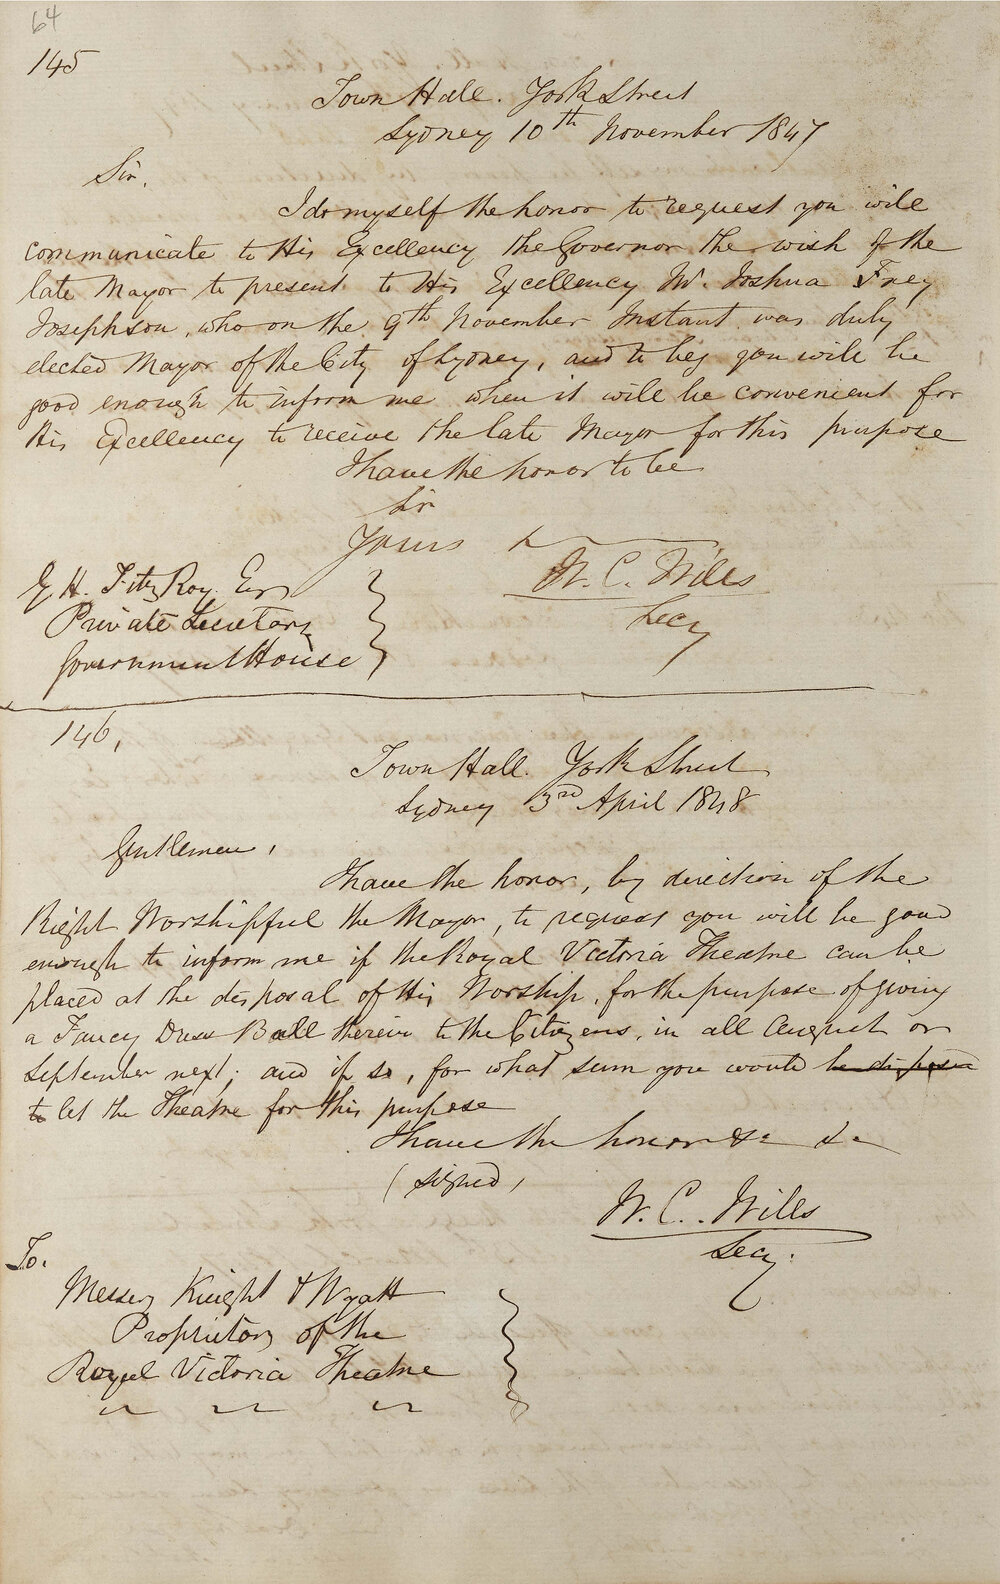 64
145
Town Hall. York Street
Sydney 10th November 1847
Sir,
I do myself the honor to request you will
communicate to His Excellency the Governor the wish of the
late Mayor to present to His Excellency Mr. Joshua Frey
Josephson, who on the 9th November Instant was duly
elected Mayor of the City of Sydney, and to beg you will be
good enough to inform me when it will be convenient for
His Excellency to receive the late Mayor for this purpose
I have the honor to be
Sir
Yours
W. C. Wills
Secy
H. FitzRoy Esqr
Private Secretary
Government House
146,
Town Hall. York Street
Sydney 3rd April 1848
Gentlemen,
I have the honor, by direction of the
Right Worshipful the Mayor, to request you will be good
enough to inform me if the Royal Victoria Theatre can be
placed at the disposal of His Worship, for the purpose of giving
a Fancy Dress Ball therein to the Citizens, in all August or
September next; and if so, for what sum you would be disposed
to let the Theatre for this purpose
I have the honor &c &c
(signed)
W. C. Wills
Secy.
To.
Messrs Knight & Wyatt
Proprietors of the
Royal Victoria Theatre